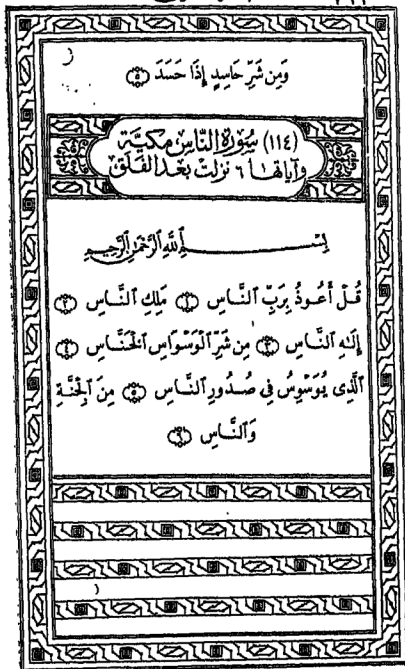 وَمِن شَرِّ حَاسِدٍ إِذَا حَسَدَ ۝٥
(١١٤) سُورَةُ النَّاسِ مَكِيَّة
وآياتها ٦ نزلت بعد الفلق
بِسْمِ اللَّهِ الرَّحْمَٰنِ الرَّحِيمِ
قُلْ أَعُوذُ بِرَبِّ ٱلنَّاسِ ۝١ مَلِكِ ٱلنَّاسِ ۝٢
إِلَٰهِ ٱلنَّاسِ ۝٣ مِن شَرِّ ٱلْوَسْوَاسِ ٱلْخَنَّاسِ ۝٤
ٱلَّذِى يُوَسْوِسُ فِى صُدُورِ ٱلنَّاسِ ۝٥ مِنَ ٱلْجِنَّةِ
وَٱلنَّاسِ ۝٦